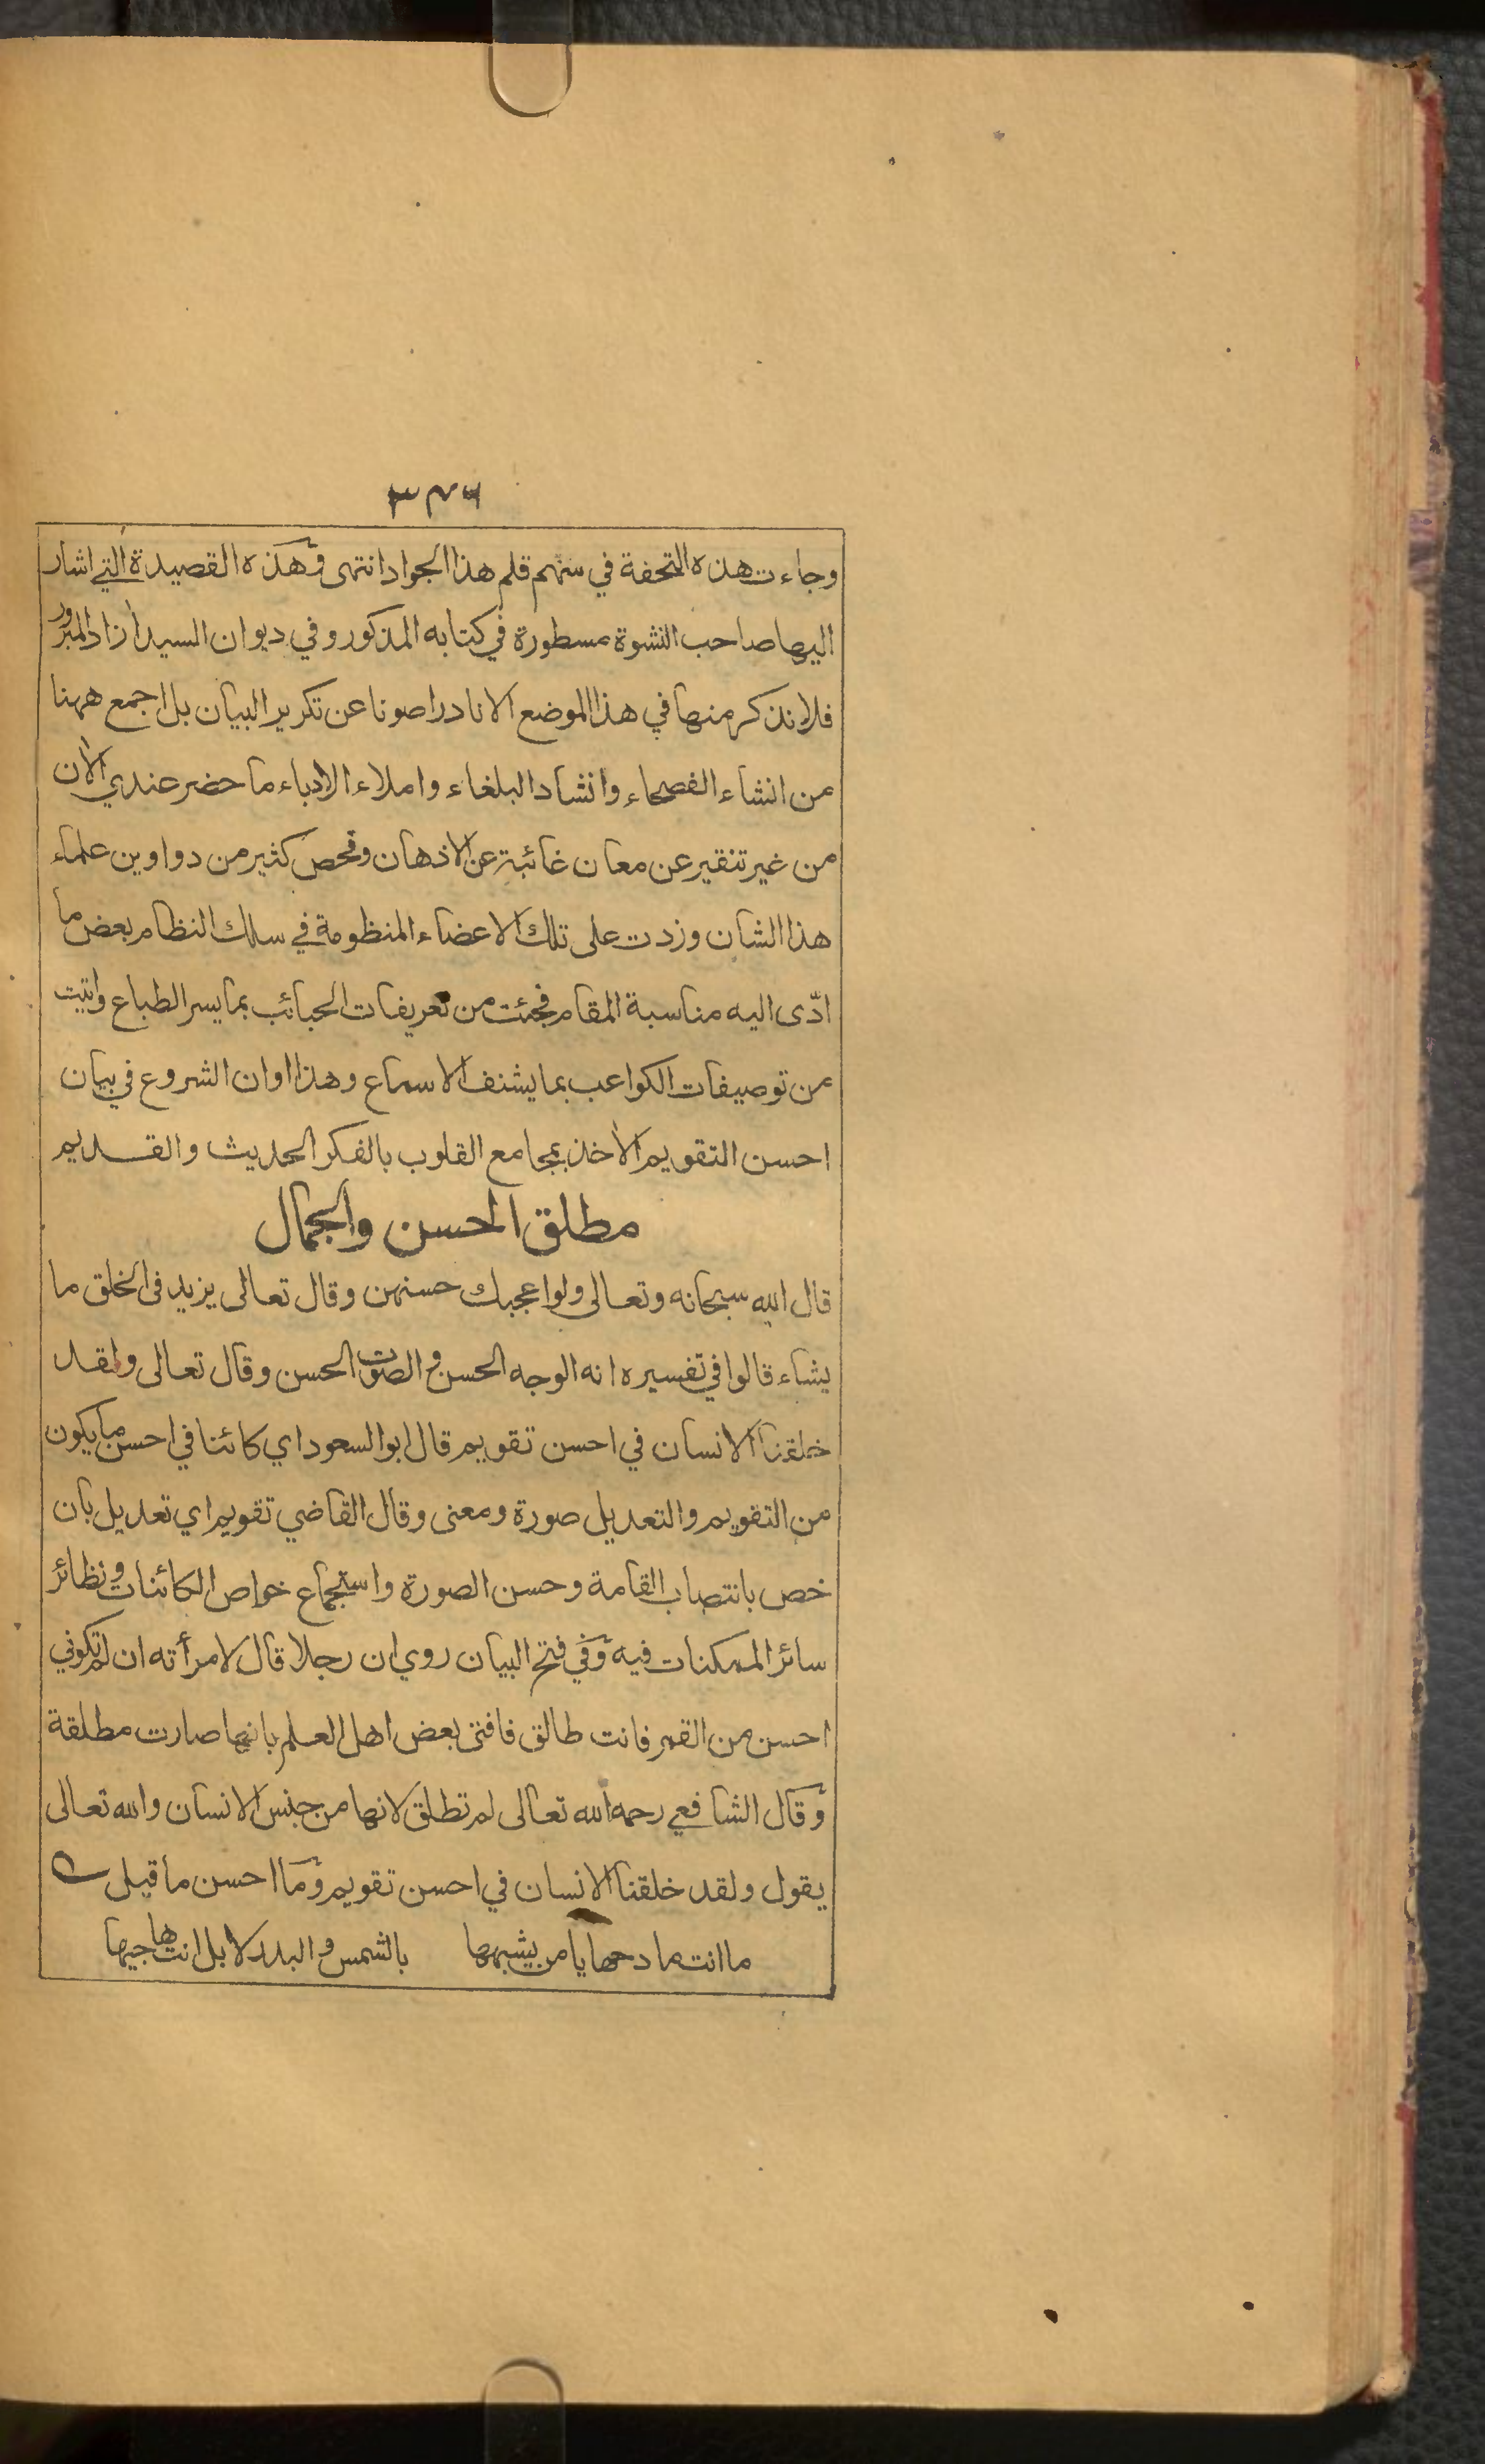 ٣٤٦
وجاءت هذه التحفة في سهم قلم هذا الجواد انتهى وهذه القصيدة التي اشار
اليها صاحب النشوة مسطورة في كتابه المذكور وفي ديوان السيد آزاد المبرور
فلا نذكر منها في هذا الموضع الا نادرا صونا عن تكرير البيان بل اجمع ههنا
من انشاء الفصحاء وانشاد البلغاء واملاء الادباء ما حضر عندي الآن
من غير تنقير عن معان غائبة عن الاذهان وفحص كثير من دواوين علماء
هذا الشان وزدت على تلك الاعضاء المنظومة في سلك النظام بعض ما
ادّى اليه مناسبة المقام فجئت من تعريفات الحبائب بما يسر الطباع واتيت
من توصيفات الكواعب بما يشنف الاسماع وهذا اوان الشروع في بيان
احسن التقويم الآخذ بمجامع القلوب بالفكر الحديث والقديم
مطلق الحسن والجمال
قال الله سبحانه وتعالى ولو اعجبك حسنهن وقال تعالى يزيد في الخلق ما
يشاء قالوا في تفسيره انه الوجه الحسن والصوت الحسن وقال تعالى ولقد
خلقنا الانسان في احسن تقويم قال ابو السعود اي كائنا في احسن ما يكون
من التقويم والتعديل صورة ومعنى وقال القاضي تقويم اي تعديل بان
خص بانتصاب القامة وحسن الصورة واستجماع خواص الكائنات ونظائر
سائر الممكنات فيه وفي فتح البيان روي ان رجلا قال لامرأته ان لم تكوني
احسن من القمر فانت طالق فافتى بعض اهل العلم بانها صارت مطلقة
وقال الشافعي رحمه الله تعالى لم تطلق لانها من جنس الانسان والله تعالى
يقول ولقد خلقنا الانسان في احسن تقويم وما احسن ما قيل
ما انت مادحها يا من يشبهها بالشمس والبدر لا بل انت هاجيها